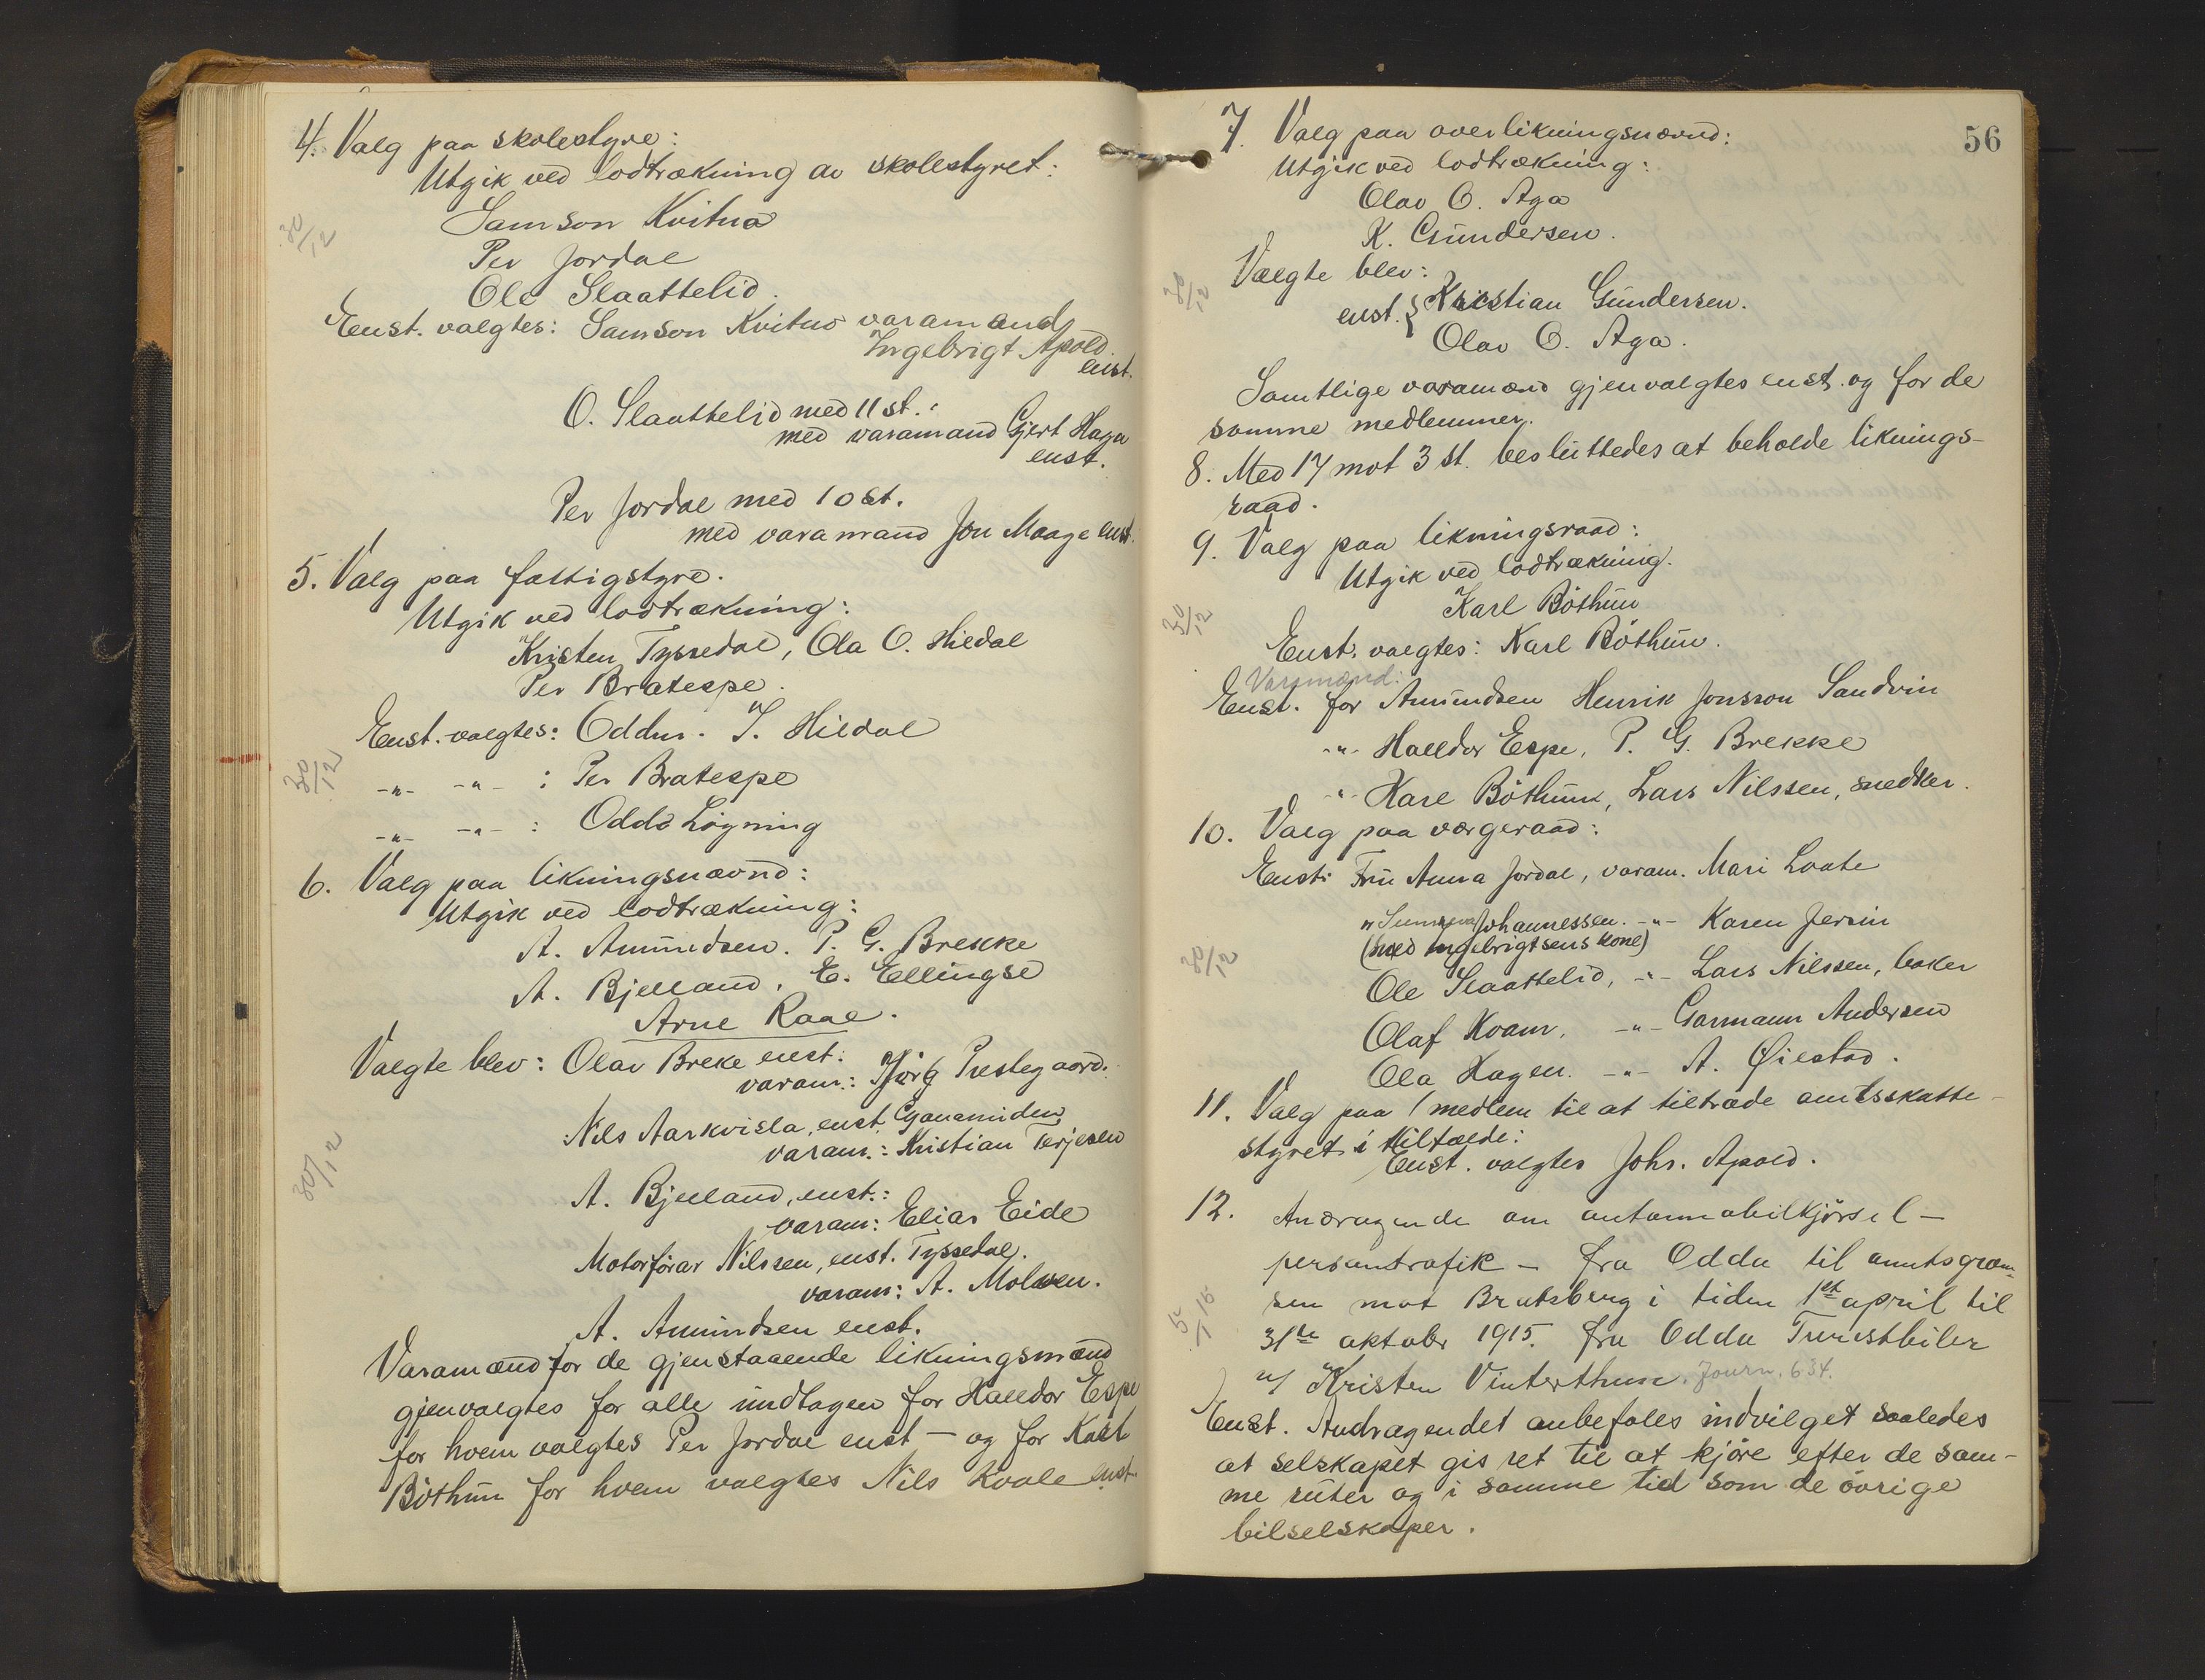 4. Valg paa skolestyre:
Utgik ved lodtrækning av skolestyret:
30/12
Samson Kvitnæ
Per Jordal
Ole Slaattelid.
Enst. valgtes: Samson Kvitno varamand
Ingebrigt Apold
enst.
O. Slaattelid med 11 st.:
med varamand Gjert Haga
enst.
Per Jordal med 10 st.
med varamand Jon Maage enst.
5. Valg paa fattigstyre.
Utgik ved lodtrækning:
Kristen Tyssedal, Ola O. Hildal
Per Bratespe.
Enst. valgtes: Oddm. T. Hildal
30/12
-"- -"- : Per Bratespe
-"- -"- : Odd Løyning
6. Valg paa likningsnævnd:
Utgik ved lodtrækning:
A. Amundsen. P. G. Brekke
A. Bjelland, E. Ellingse
Arne Raae.
Valgte blev: Olav Breke enst.
varam.: Prestegaard.
Nils Aarkvisla, enst. Cyanamiden
varam.: Kristian Terjesen
30/12
A. Bjelland, enst.:
varam: Elias Eide
Motorförar Nilssen, enst. Tyssedal.
varam: A. Molven.
A. Amundsen enst.
Varamænd for de gjenstaaende likningsmænd
gjenvalgtes for alle undtagen for Halldor Espe
for hvem valgtes Per Jordal enst – og for Karl
Böthun for hvem valgtes Nils Kvale enst.
56
7. Valg paa overlikningsnævnd:
Utgik ved lodtrækning:
Olav O. Aga
K. Gundersen.
Valgte blev:
30/12
enst. { Kristian Gundersen.
Olav O. Aga.
Samtlige varamænd gjenvalgtes enst. og for de
samme medlemmer.
8. Med 17 mot 3 st. besluttedes at beholde liknings-
raad.
9. Valg paa likningsraad:
Utgik ved lodtrækning.
Karl Böthun
30/12
Enst. valgtes: Karl Böthun.
Varamænd:
Enst. for Amundsen Henrik Jonsson Sandvin
-"- Halldor Espe, P. G. Brekke
-"- Karl Böthun, Lars Nilssen, snedker.
10. Valg paa værgeraad:
Enst: Fru Anna Jordal, varam. Mari Laate
" Sunneva Johannessen. -"- Karen Jersin
(med Ingebrigtsens kone)
30/12
Ole Slaattelid, -"- Lars Nilssen, baker
Olaf Kvam, -"- Garmann Andersen
Ola Hagen. -"- A. Öiestad.
11. Valg paa 1 medlem til at tiltræde amtsskatte-
styret i tilfælde:
Enst. valgtes Johs. Apold.
12. Andragende om automobilkjörsel –
persontrafik – fra Odda til amtsgræn-
sen mot Bratsberg i tiden 1st april til
5/1 15
31te oktobr 1915. fra Odda Turistbiler
v/ Kristen Vinterthun. Journ. 634.
Enst. Andragendet anbefales indvilget saaledes
at selskapet gis ret til at kjöre efter de sam-
me ruter og i samme tid som de övrige
bilselskaper.